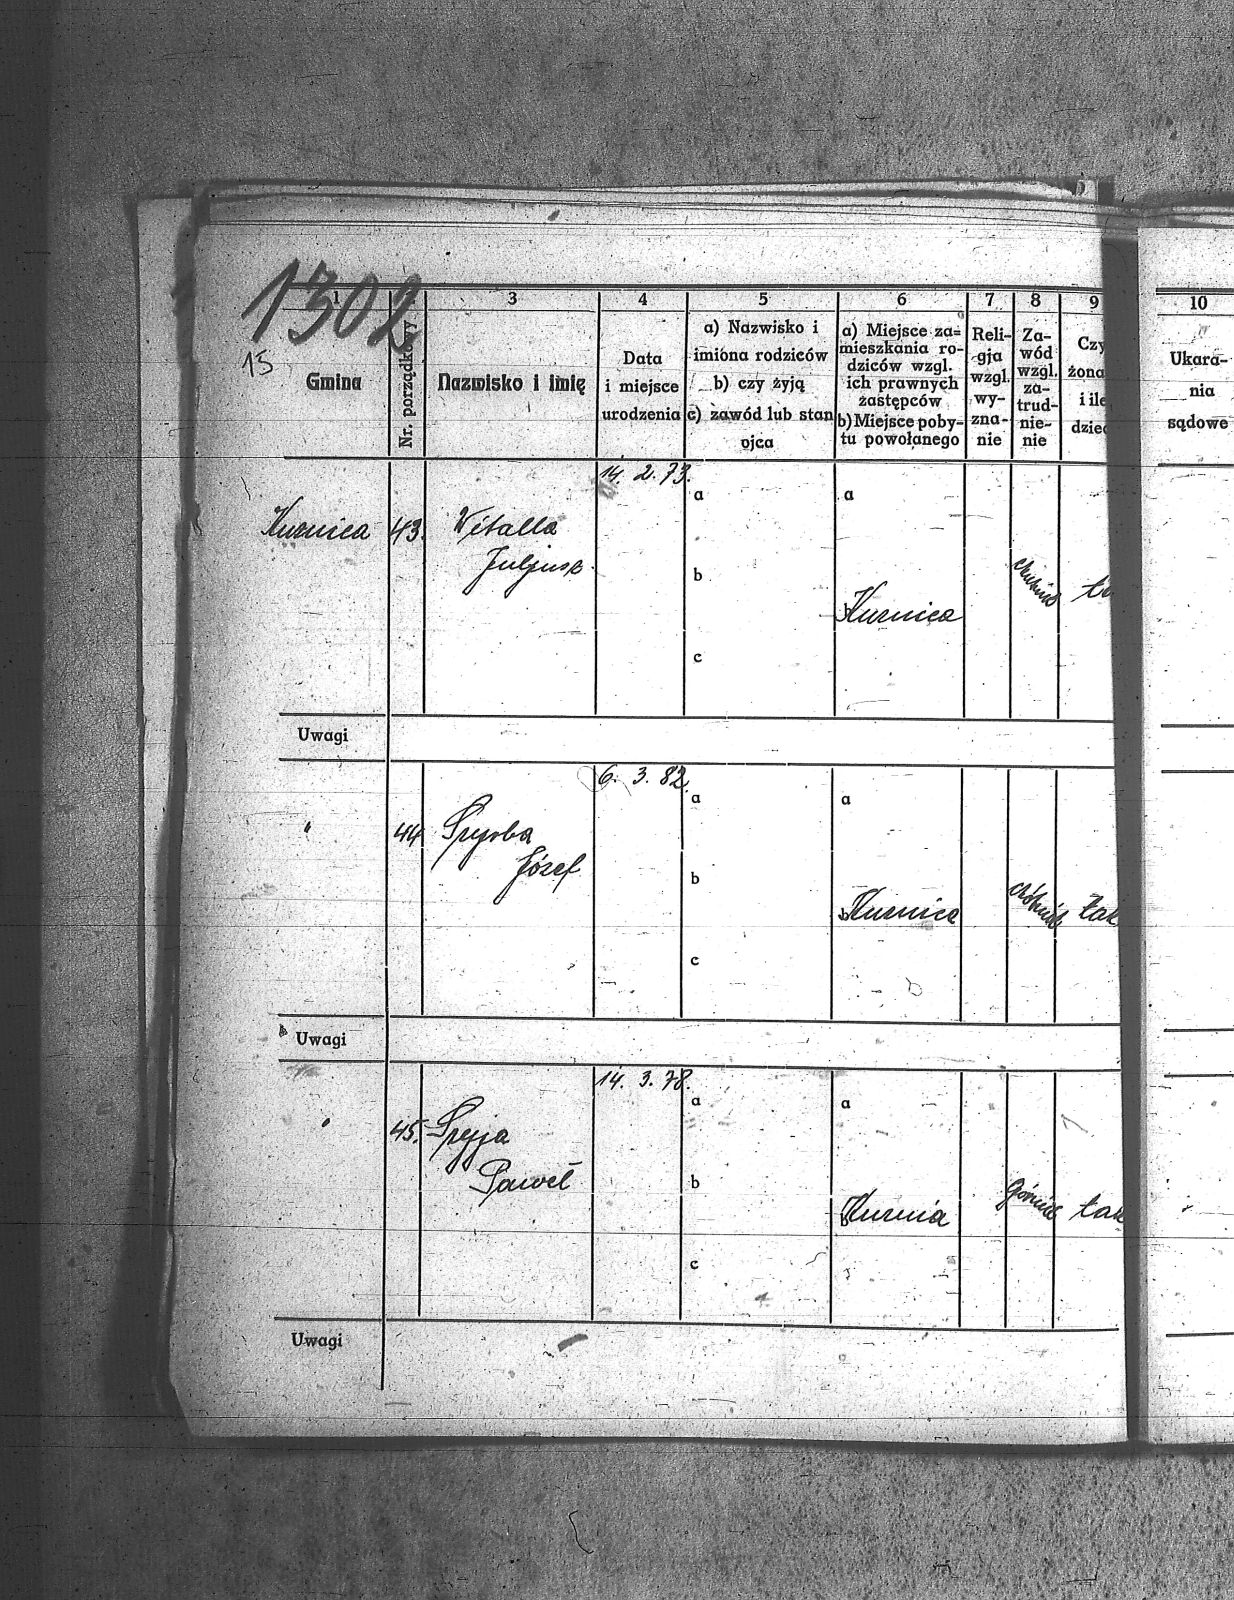 1302
15
1
3
4
5
6
7
8
9
10
Gmina
Nr. porządkowy
Nazwisko i imię
Data
i miejsce
urodzenia
a) Nazwisko i
imiona rodziców
b) czy żyją
c) zawód lub stan
ojca
a) Miejsce za=
mieszkania ro-
dziców wzgl.
ich prawnych
zastępców
b) Miejsce poby-
tu powołanego
Reli-
gja
wzgl.
wy-
zna-
nie
Za-
wód
wzgl.
za-
trud-
nie-
nie
Czy
żona
i ile
dziec
Ukara-
nia
sądowe
14. 2. 73.
a
a
Kurnica 43. Witalla
Juljusz.
b
b Kurnica
c
Uwagi
6. 3. 82.
a
a
" 44
Józef
b
b Kurnica
tak
c
Uwagi
14. 3. 78.
a
a
" 45.
Paweł
b
b Kurnia
Górnik
tak
c
Uwagi